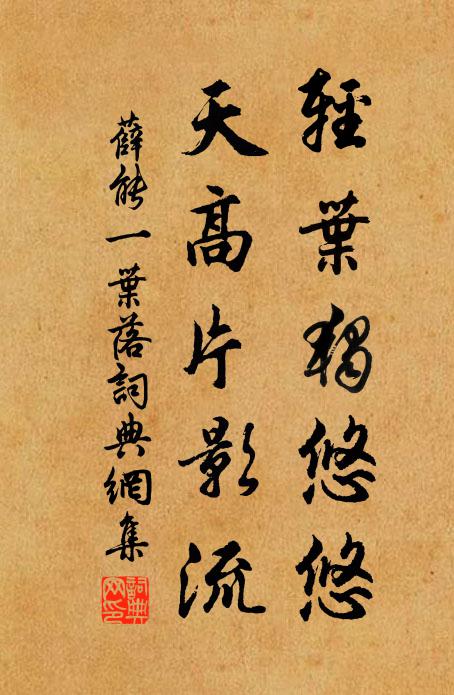 輕葉獨悠悠
天高片影流
薛能一葉落詞典網集
詞典网印